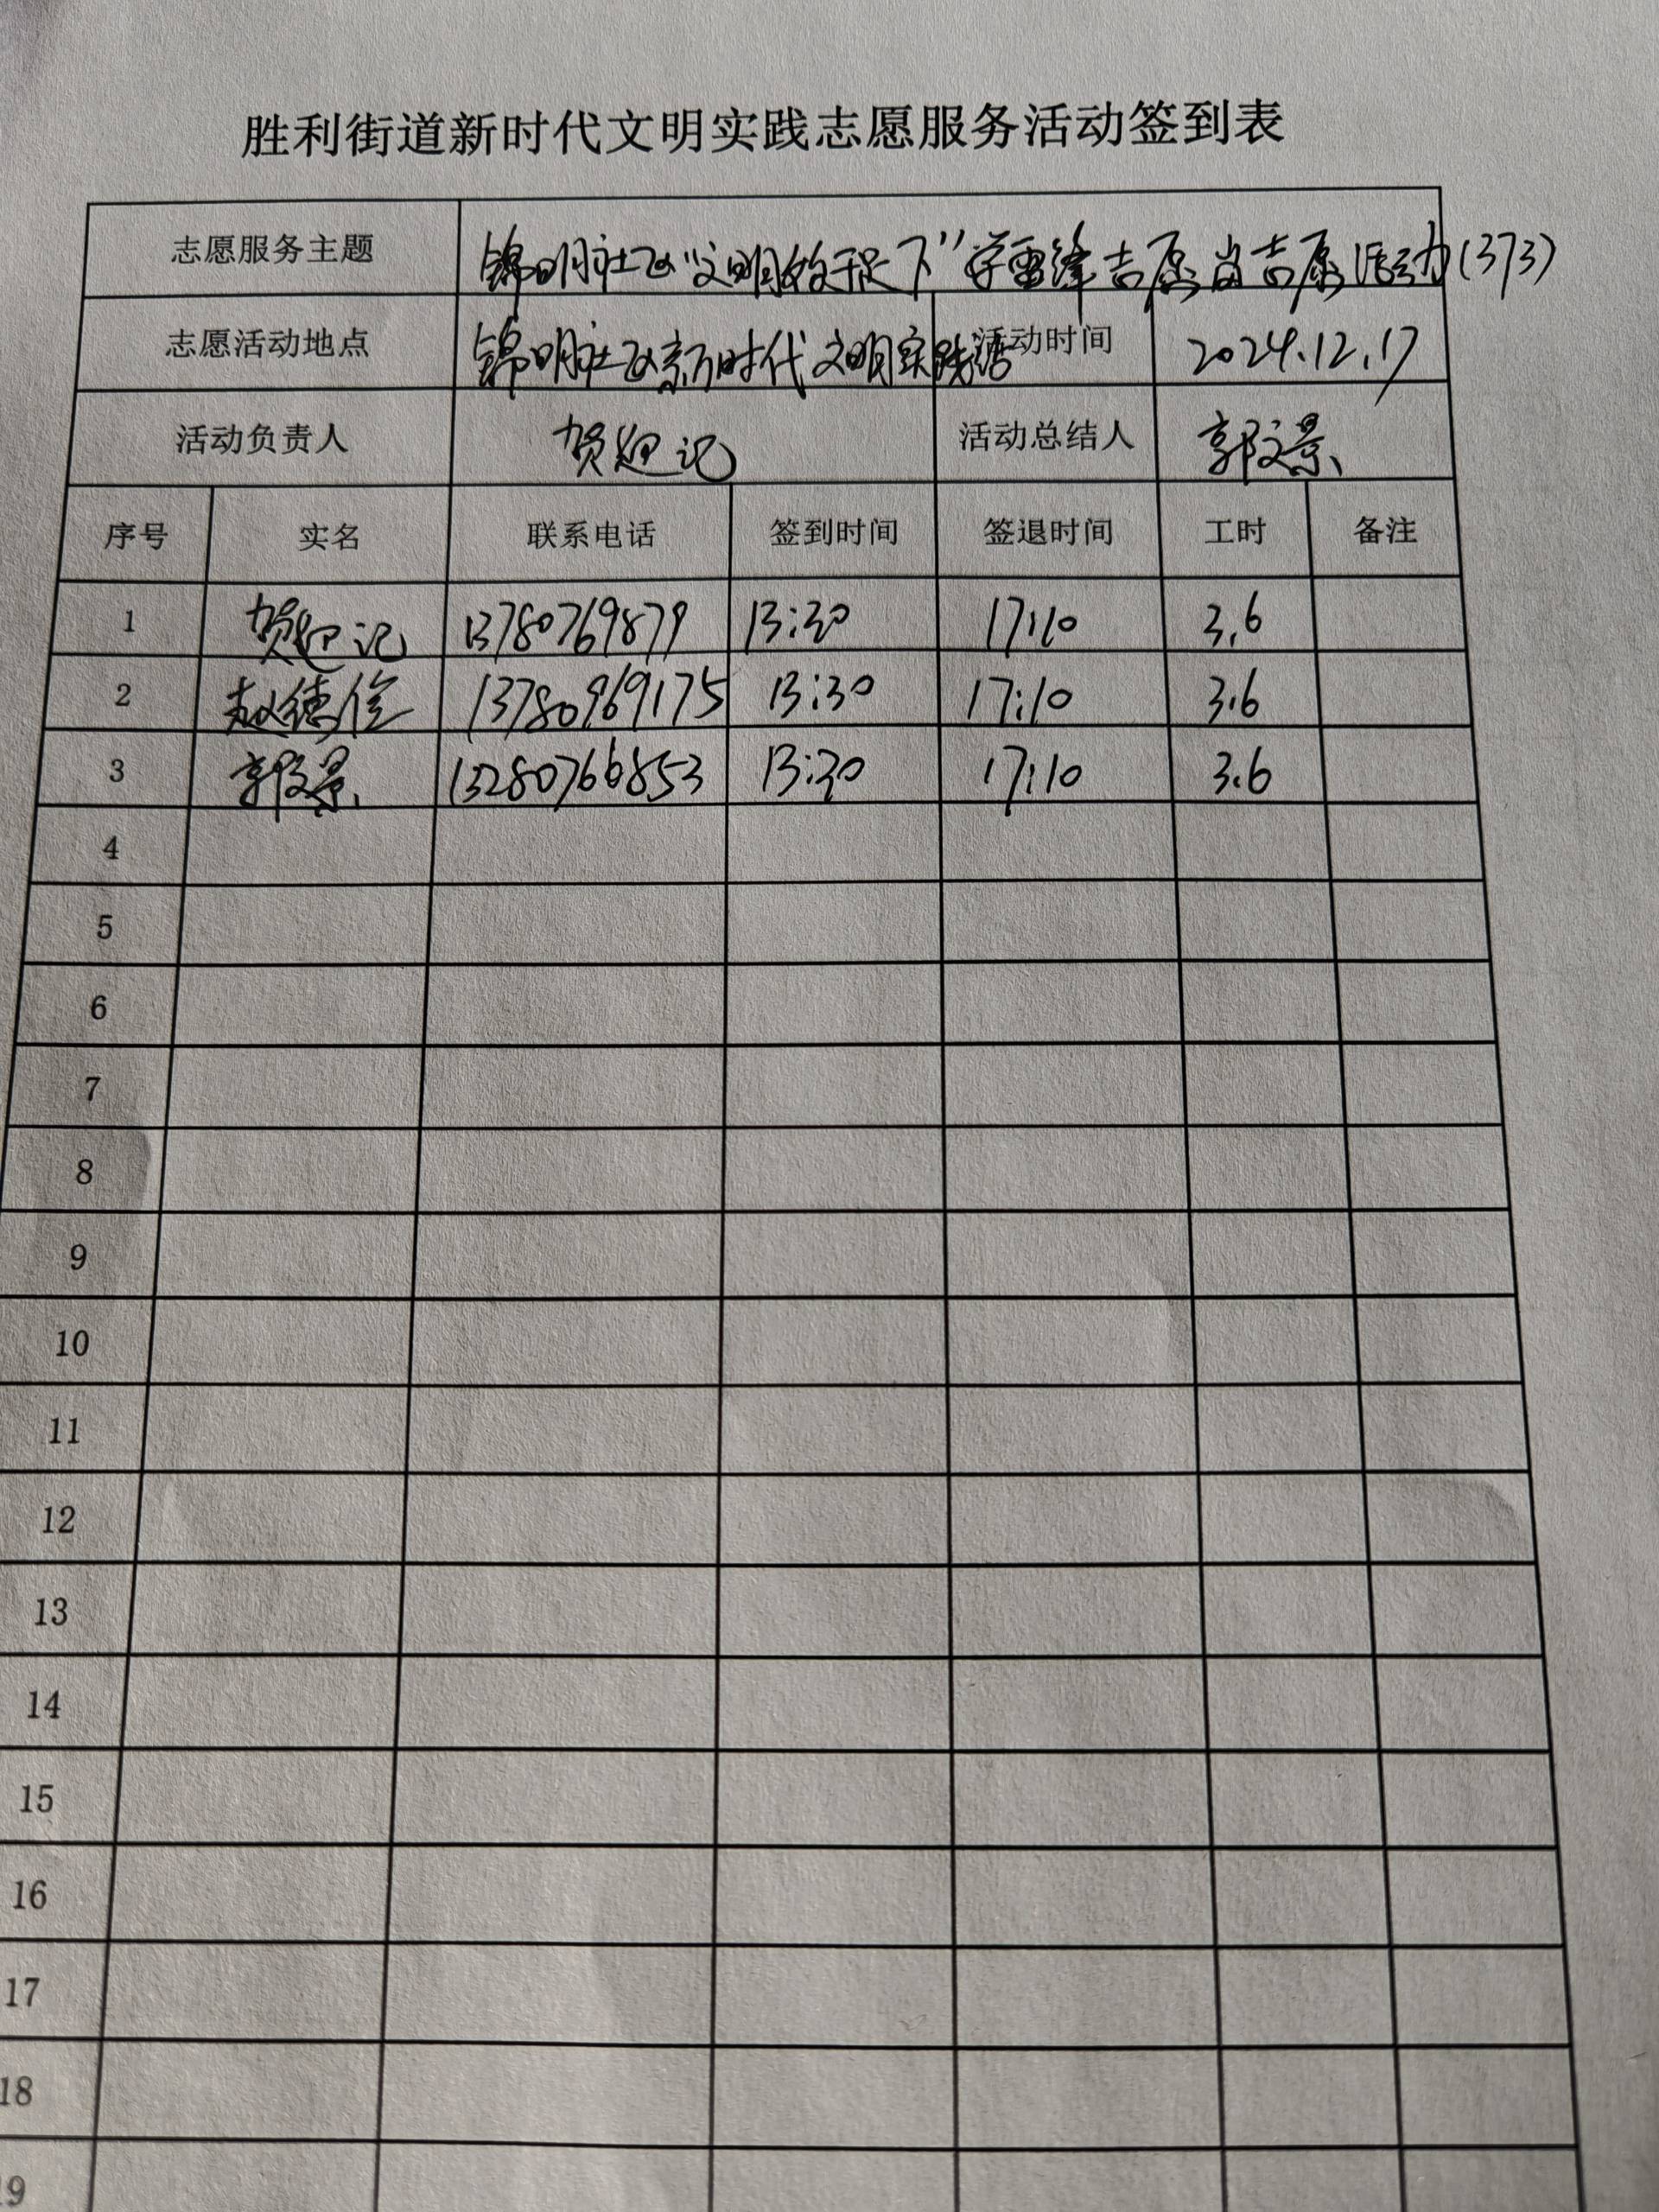 胜利街道新时代文明实践志愿服务活动签到表
志愿服务主题 锦明社区“文明始于足下”学雷锋志愿岗志愿活动(373)
志愿活动地点 锦明社区新时代文明实践站 活动时间 2024.12.17
活动负责人 贺迎记 活动总结人 郭文景
序号 实名 联系电话 签到时间 签退时间 工时 备注
1 贺迎记 13780769879 13:30 17:10 3.6
2 赵德俭 13780969175 13:30 17:10 3.6
3 郭文景 13280766853 13:30 17:10 3.6
4
5
6
7
8
9
10
11
12
13
14
15
16
17
18
19